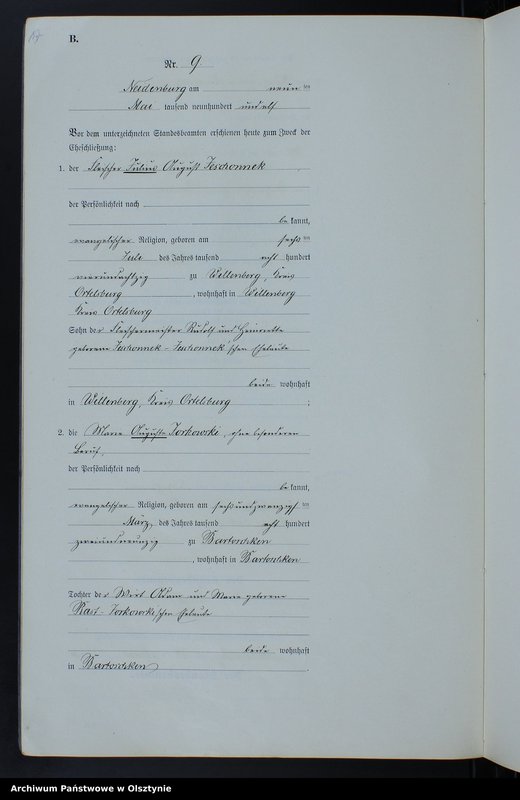 B.
Nr. 9
Neidenburg am neun ten
Mai tausend neunhundert und elf
Vor dem unterzeichneten Standesbeamten erschienen heute zum Zweck der
Eheschließung:
1. der Fleischer Julius August Jeschonnek
der Persönlichkeit nach
be kannt,
evangelischer Religion, geboren am sechs ten
Juli des Jahres tausend acht hundert
vierundachtzig zu Willenberg, Kreis
Ortelsburg, wohnhaft in Willenberg
Kreis Ortelsburg
Sohn der Fleischermeister Rudolf und Henriette
geborene Jeschonnek - Jeschonnek'schen Eheleute
beide wohnhaft
in Willenberg, Kreis Ortelsburg;
2. die Marie Auguste Jorkowski, ohne besonderen
Beruf,
der Persönlichkeit nach
be kannt,
evangelischer Religion, geboren am sechsundzwanzigsten
März, des Jahres tausend acht hundert
zweiundneunzig zu Bartoschken
, wohnhaft in Bartoschken
Tochter der Wirt Adam und Marie geborene
Jorkowski'schen Eheleute
beide wohnhaft
in Bartoschken.
Archiwum Państwowe w Olsztynie